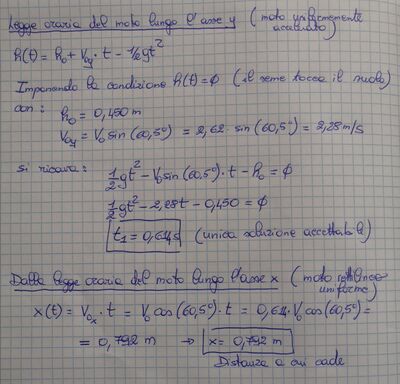 Legge oraria del moto lungo l'asse y (moto uniformemente
accelerato)
h(t) = h₀ + V₀y · t - ½gt²
Imponendo la condizione h(t) = ∅ (il seme tocca il suolo)
con: h₀ = 0,450 m
V₀y = V₀ sin (60,5°) = 2,62 · sin (60,5°) = 2,28 m/s
si ricava: 1/2 gt² - V₀ sin (60,5°) · t - h₀ = ∅
1/2 gt² - 2,28t - 0,450 = ∅
t₁ = 0,614 s (unica soluzione accettabile)
Dalla legge oraria del moto lungo l'asse x (moto rettilineo
uniforme)
x(t) = V₀x · t = V₀ cos (60,5°) · t = 0,614 · V₀ cos (60,5°) =
= 0,792 m → x = 0,792 m
Distanza a cui cade